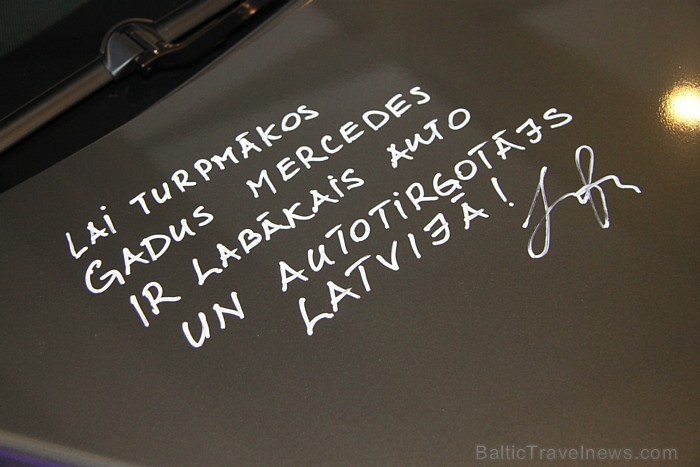 LAI TURPMĀKOS
GADUS MERCEDES
IR LABĀKAIS AUTO
UN AUTOTIRGOTĀJS
LATVIJĀ!
BalticTravelnews.com